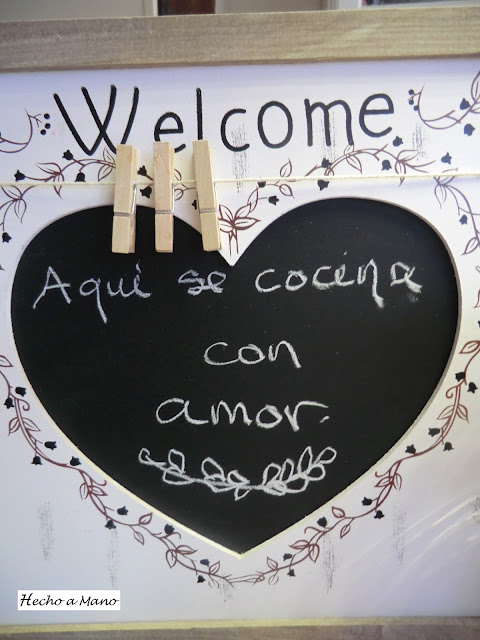 Welcome
Aqui se cocina
con
amor.
Hecho a Mano